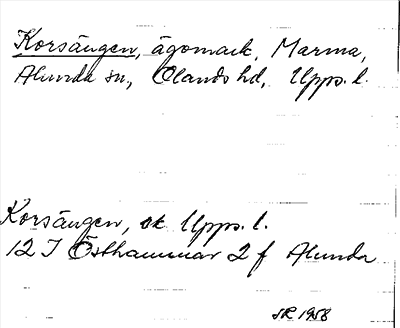 Korsängen, ägomark, Marma,
Alunda sn, Olands hd, Upps. l.
Korsängen, ek Upps. l.
12 I Östhammar 2 f Alunda
SR 1958